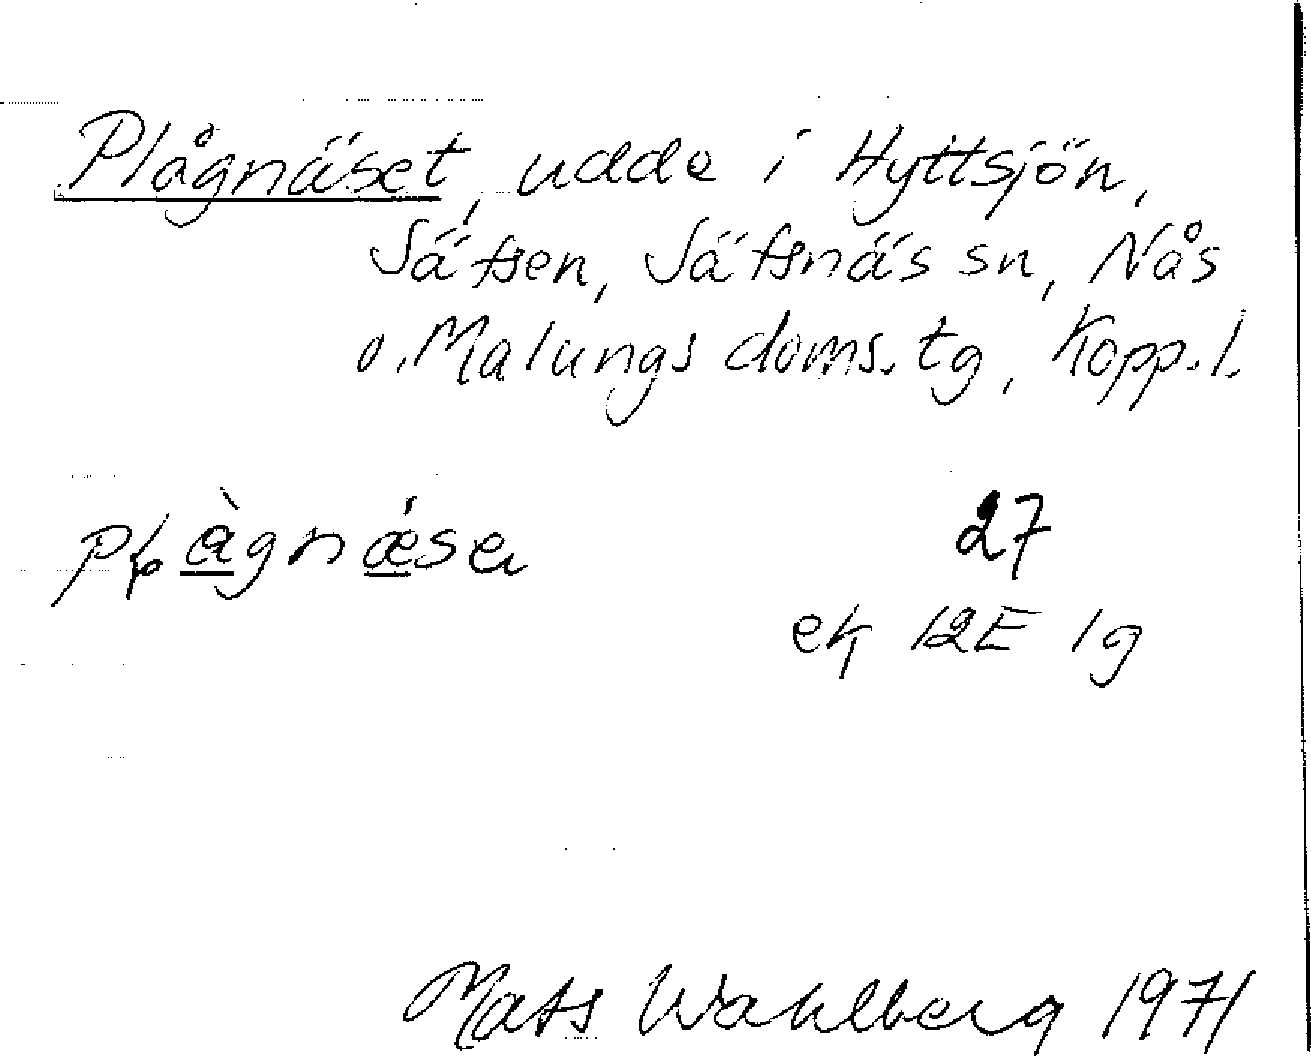 Plågnäset, udde i Hyttsjön,
Säfsen, Säfsnäs sn, Nås
o. Malungs doms. tg, Kopp. l.
27
ek 12E 1g
Mats Wahlberg 1971